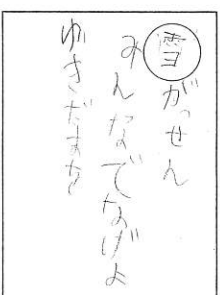 雪がっせん
みんなでなげよ
ゆきだまを